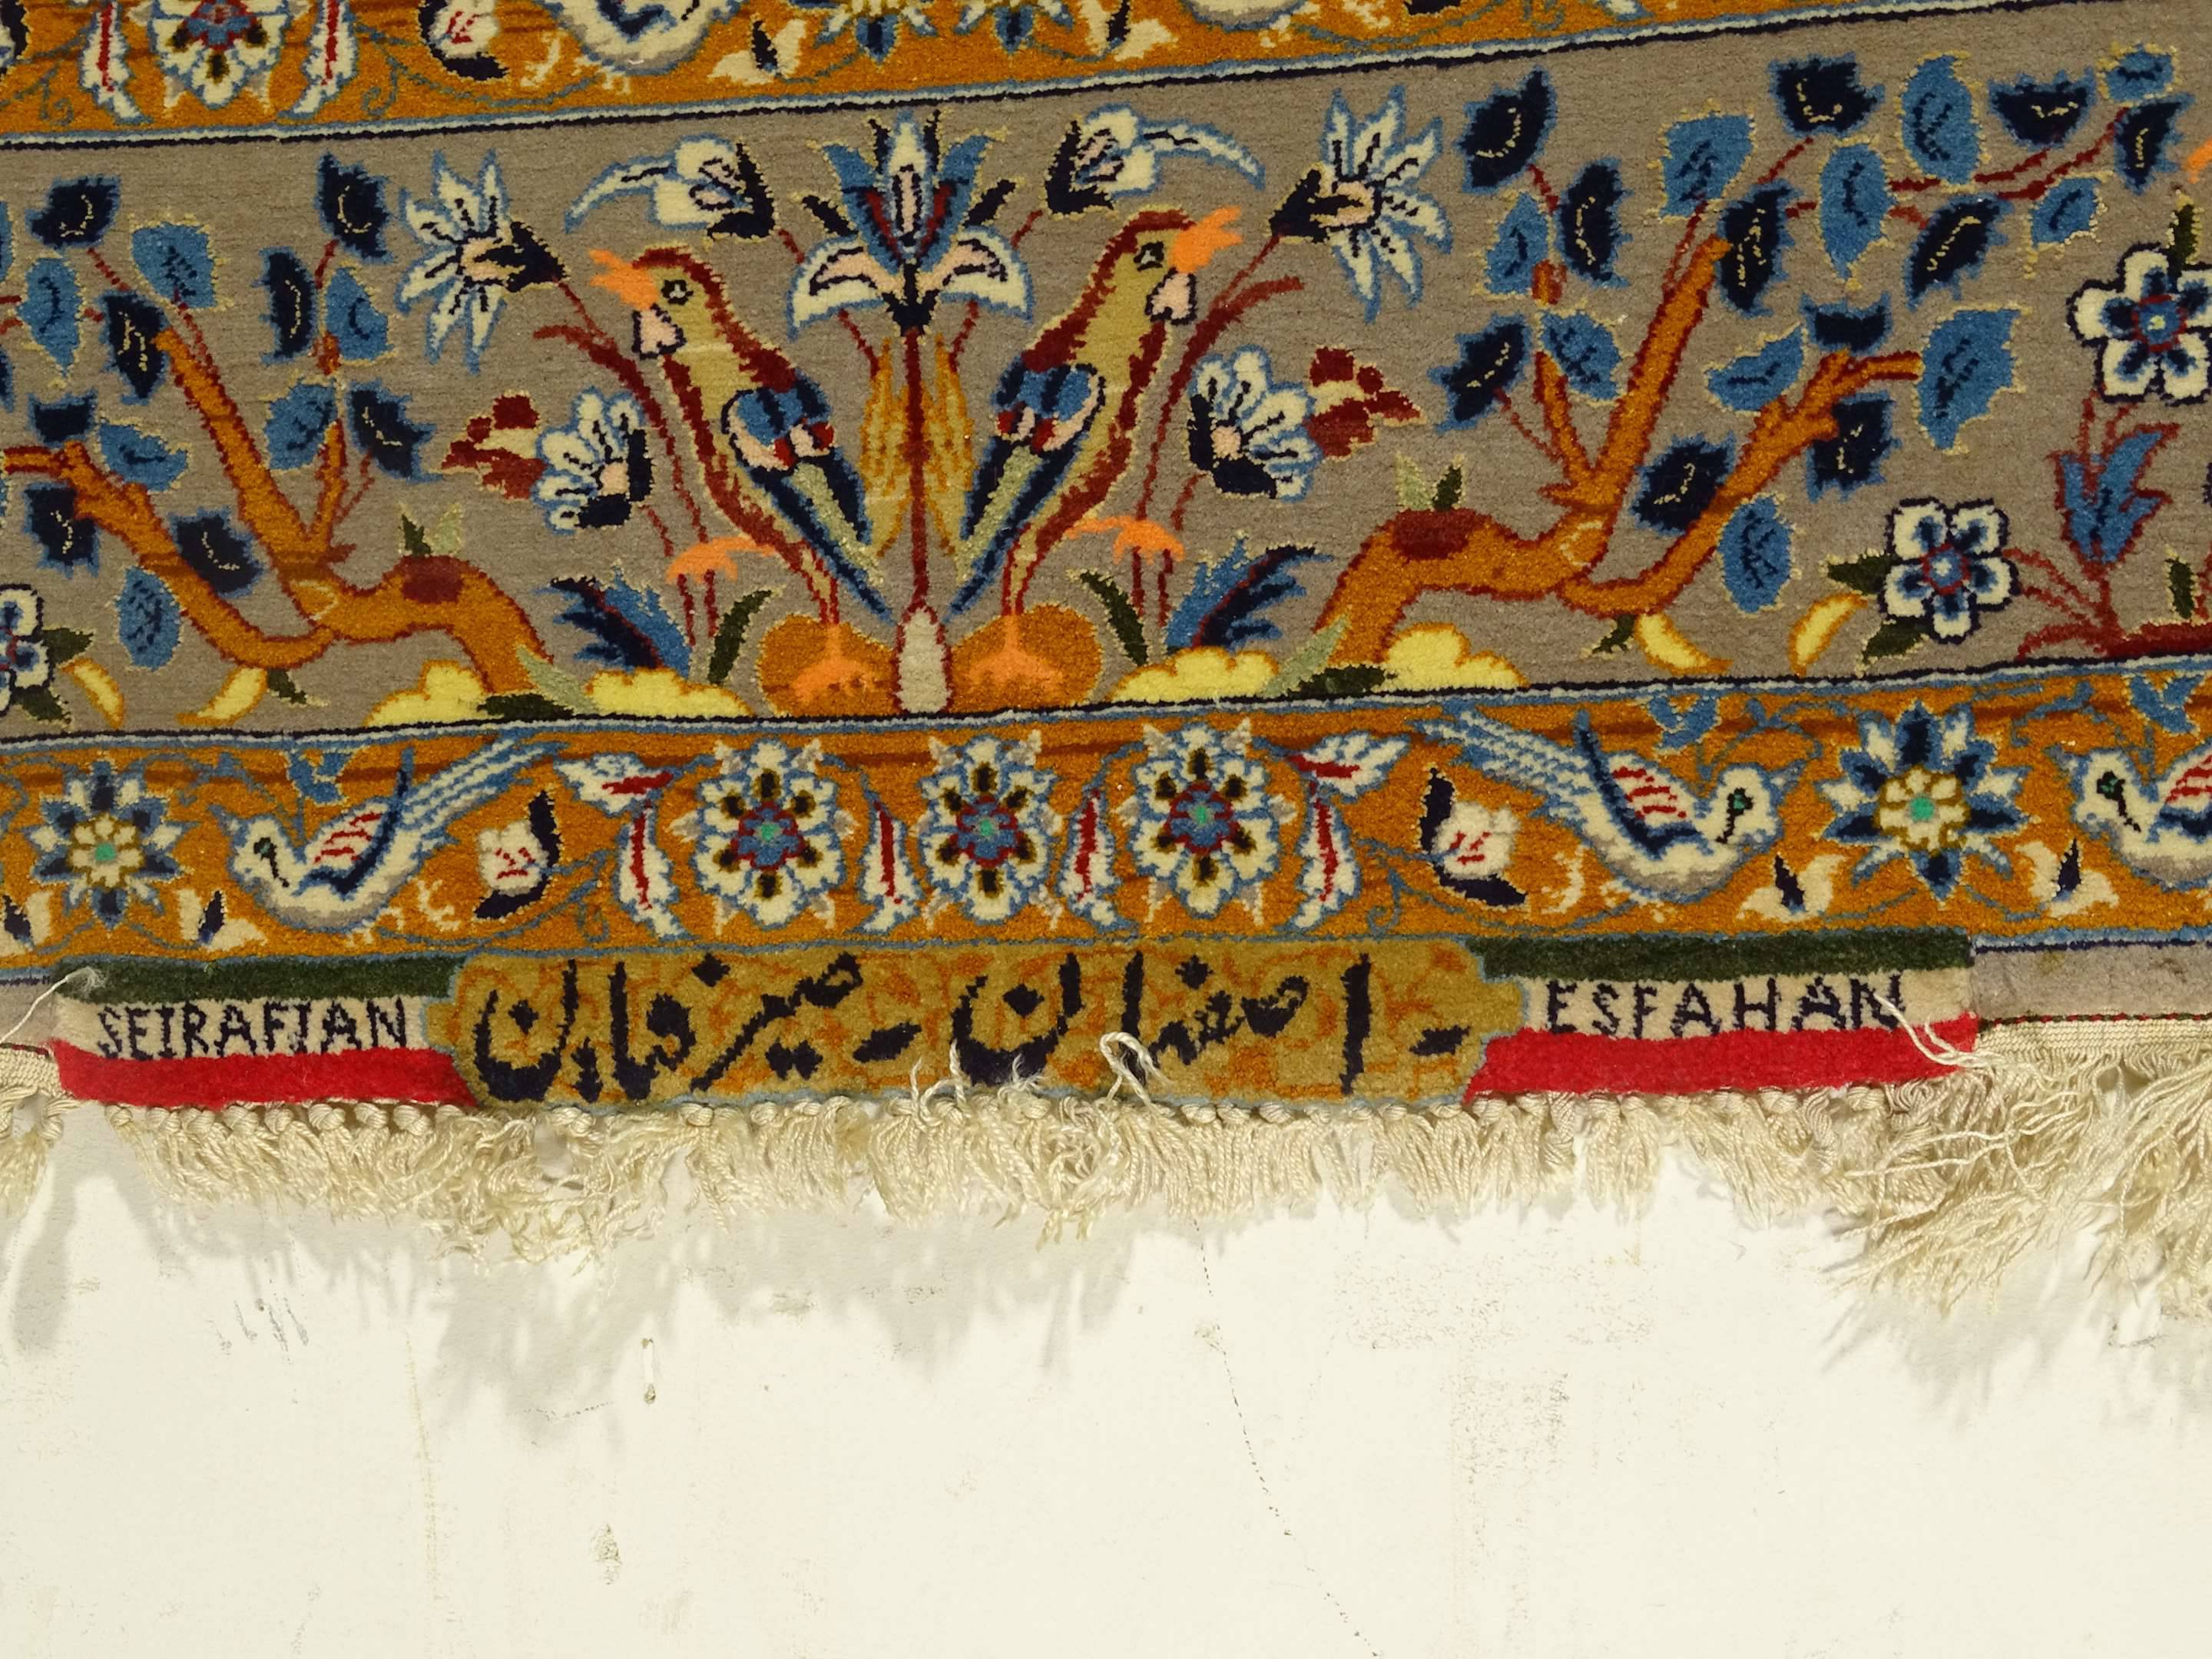 SEIRAFIAN
- اصفهان - صیرفیان
ESFAHAN